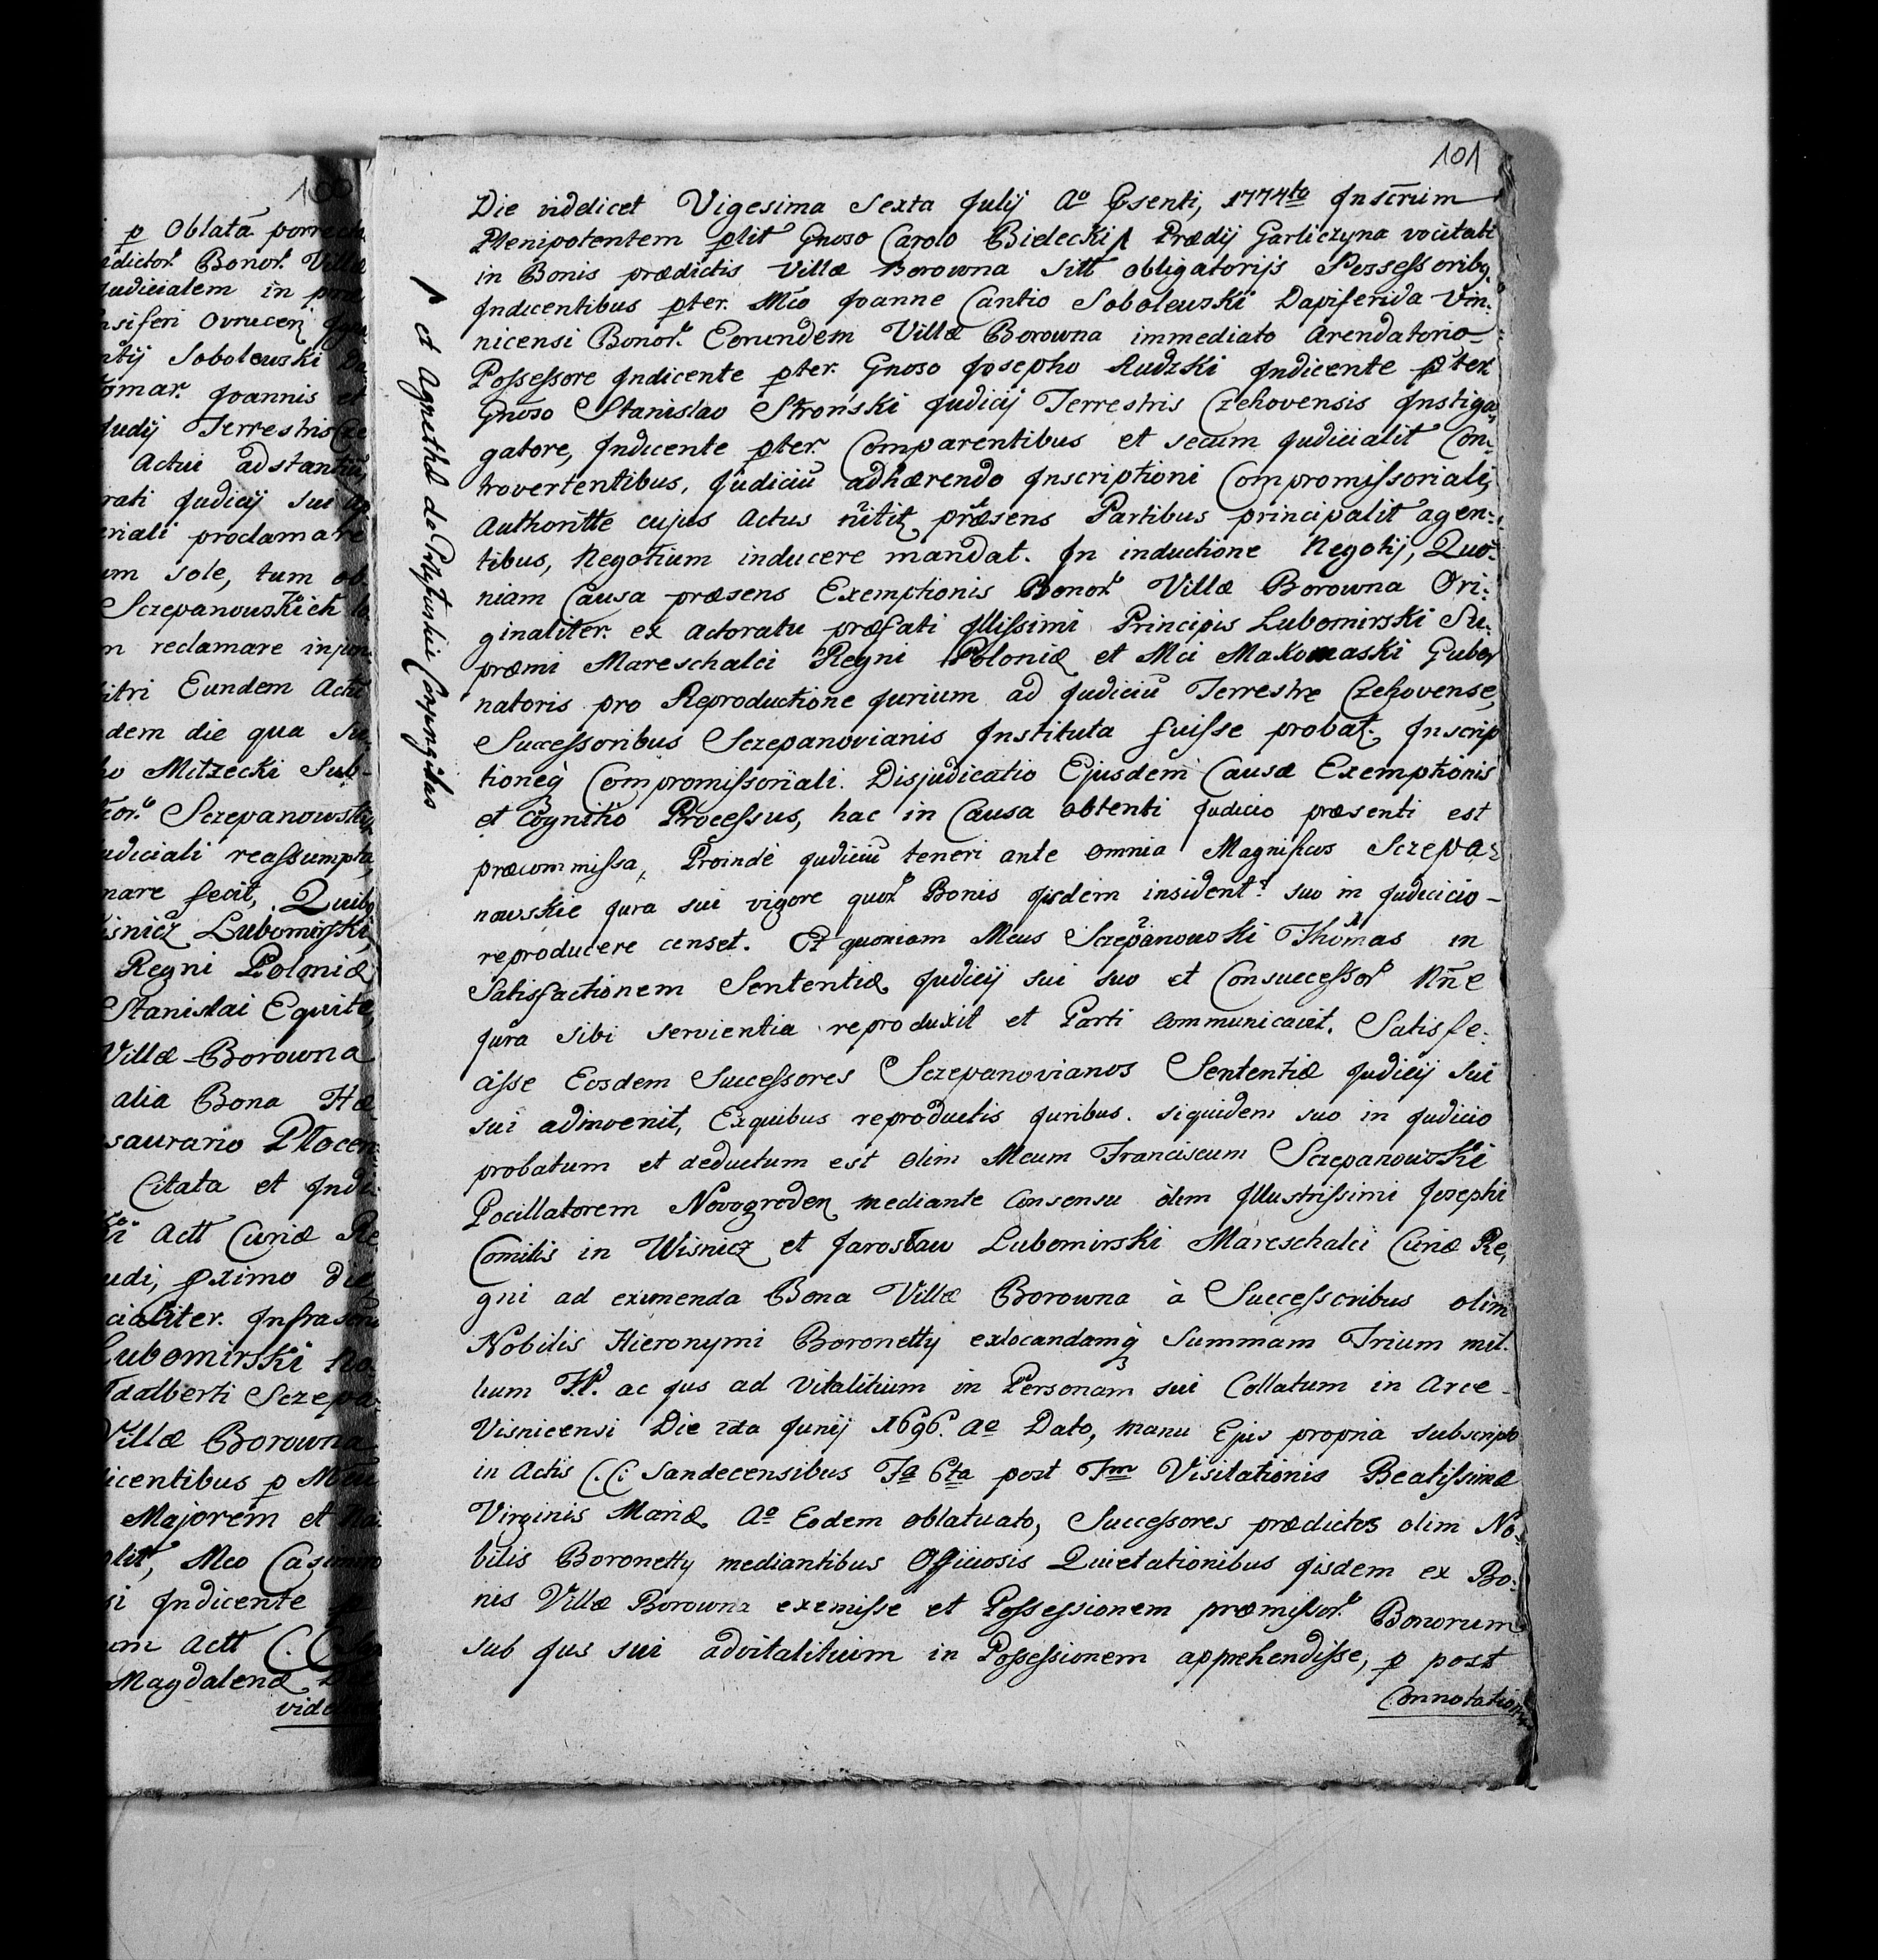 100
p Oblatã porrecta
edictor. Bonor. Villæ
Judicialem in
nsiferi Ovrucen
Sobolewski
Joannis et
Judij Terrestris
Actui adstantiu
rati Judicij sui
eriali proclamare
um sole, tum ob
Sczepanowskich
m reclamare injun
Eundem Acti
dem die qua
Milzecki Sub-
Sczepanowskij
udiciali reassumpta,
mare fecit, Quibq
isnicz Lubomirski,
Regni Poloniæ
Stanislai Equite,
Villæ Borowna
alia Bona Hæ
saurario Plocen:
Citata et Indi
Actt Curiæ Re
udi, pximo die
cialiter. Infrascri
Lubomirski
dalberti Sczepa
Villæ Borowna
icentibus p
Majorem et
plit, Mco Casimiro
si Indicente
um Actt C. C.
Magdalenæ
vide
101
Die videlicet Vigesima Sexta Julij Aº Psenti, 1774to Inscrum
Plenipotentem plit Gnoso Carolo Bielecki Λ Prædij Garliczyna vocitati
in Bonis prædictis Villæ Borowna sitt obligatorijs Possessoribq
Indicentibus pter. Mco Joanne Cantio Sobolewski Dapiferida Vin:
nicensi Bonor. Eorundem Villæ Borowna immediato Arendatorio
Possessore Indicente pter. Gnoso Josepho Rudzki Indicente pter
Gnoso Stanislao Stronski Judicij Terrestris Czchovensis Instiga
gatore, Indicente pter. Comparentibus et secum Judicialit Con:
trovertentibus, Judiciu adhærendo Inscriptioni Compromissoriali,
Authoritte cujus Actus nitit præsens Partibus principalit agen:
tibus, Negotium inducere mandat. In inductione Negotij, Quo:
niam Causa præsens Exemptionis Bonor Villæ Borowna Ori:
ginaliter. ex Actoratu præfati Illissimi Principis Lubomirski Su:
præmi Mareschalci Regni Poloniæ et Mci Makomaski Guber
natoris pro Reproductione Jurium ad Judiciu Terrestre Czchovense,
Successoribus Sczepanovianis Instituta fuisse probat. Inscrip
tioneq Compromissoriali. Disjudicatio Ejusdem Causæ Exemptionis
et Cognitio Processus, hac in Causa obtenti Judicio præsenti est
præcommissa, Proinde Judiciu teneri ante omnia Magnificos Sczepa:
nowskie Jura sui vigore quor Bonis Iisdem insident. suo in Judicio -
reproducere censet. Et quoniam Mcus Sczepanowski Thomas in
Satisfactionem Sententiæ Judicij sui suo et Consuccessor Nñe
Jura sibi servientia reproduxit et Parti communicavit. Satisfe:
cisse Eosdem Successores Sczepanovianos Sententiæ Judicij sui
sui adinvenit, Ex quibus reproductis Juribus. siquidem suo in Judicio
probatum et deductum est olim Mcum Franciscum Sczepanowski
Pocillatorem Novogroden mediante Consensu olim Illustrissimi Josephi
Comitis in Wisnicz et Jarosław Lubomirski Mareschalci Curiæ Re,
gni ad eximenda Bona Villæ Borowna à Successoribus olim
Nobilis Hieronymi Boronetty exlocandamq Summam Trium mil.
lium Fl. ac Jus ad Vitalitium in Personam sui Collatum in Arce -
Visnicensi Die 2da Junij 1696. Aº Dato, manu Ejus propria subscripto
in Actis C.C. Sandecensibus Fa 6ta post Fm Visitationis Beatissimæ
Virginis Mariæ Aº Eodem oblatuato, Successores prædictos olim No:
bilis Boronetty mediantibus Officiosis Quietationibus Iisdem ex Bo:
nis Villæ Borowna exemisse et Possessionem præmissor. Bonorum
sub Jus sui advitalitium in Possessionem apprehendisse, p post
Connotation
Λ et Agnethæ de